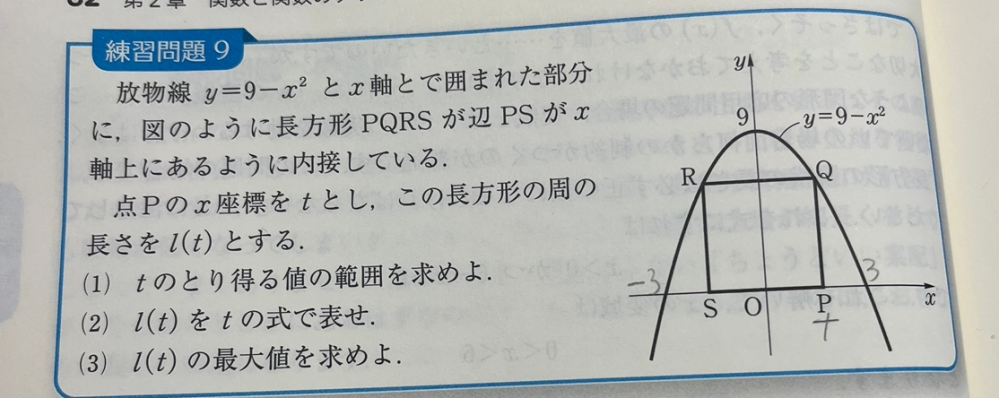 82 第2章
練習問題 9
放物線 y=9−x² とx軸とで囲まれた部分
に，図のように長方形PQRSが辺PSがx
軸上にあるように内接している．
点Pのx座標をtとし，この長方形の周の
長さをl(t)とする．
(1) tのとり得る値の範囲を求めよ．
(2) l(t)をtの式で表せ．
(3) l(t)の最大値を求めよ．
y
9
y=9−x²
R
Q
−3
3
S
O
P
x
t